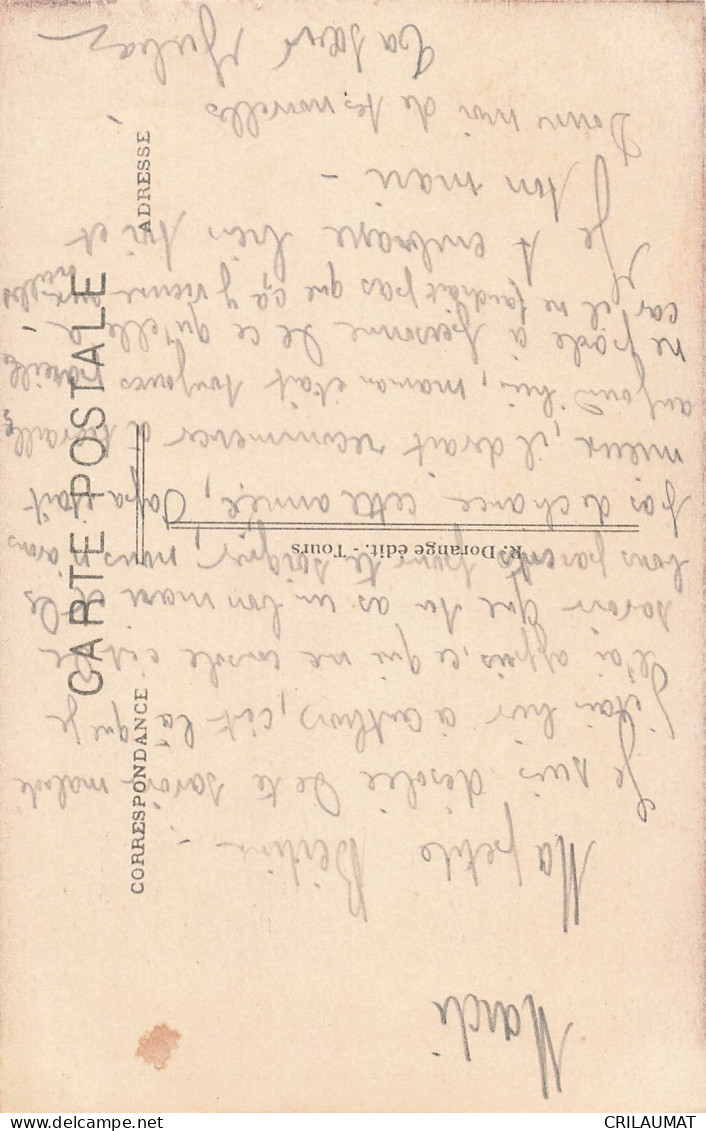 CARTE POSTALE
CORRESPONDANCE
ADRESSE
R. Dorange édit. - Tours
Mardi
Ma petite
Je suis désolée de te savoir malade
j'étais hier à c'est là que je
l'ai appris, ce qui me console c'est de
savoir que tu as un bon mari et des
bons parents pour te soigner, nous n'avons
pas de chance cette année, Papa était
mieux, il devait recommencer à travailler
aujourd'hui, maman était toujours pareille
ne parle à personne de ce qu'elle a
car il ne faudrait pas que ça y vienne aux oreilles
Je t'embrasse bien toi et
ton mari -
Donne moi de tes nouvelles
Ta sœur
CRILAUMAT